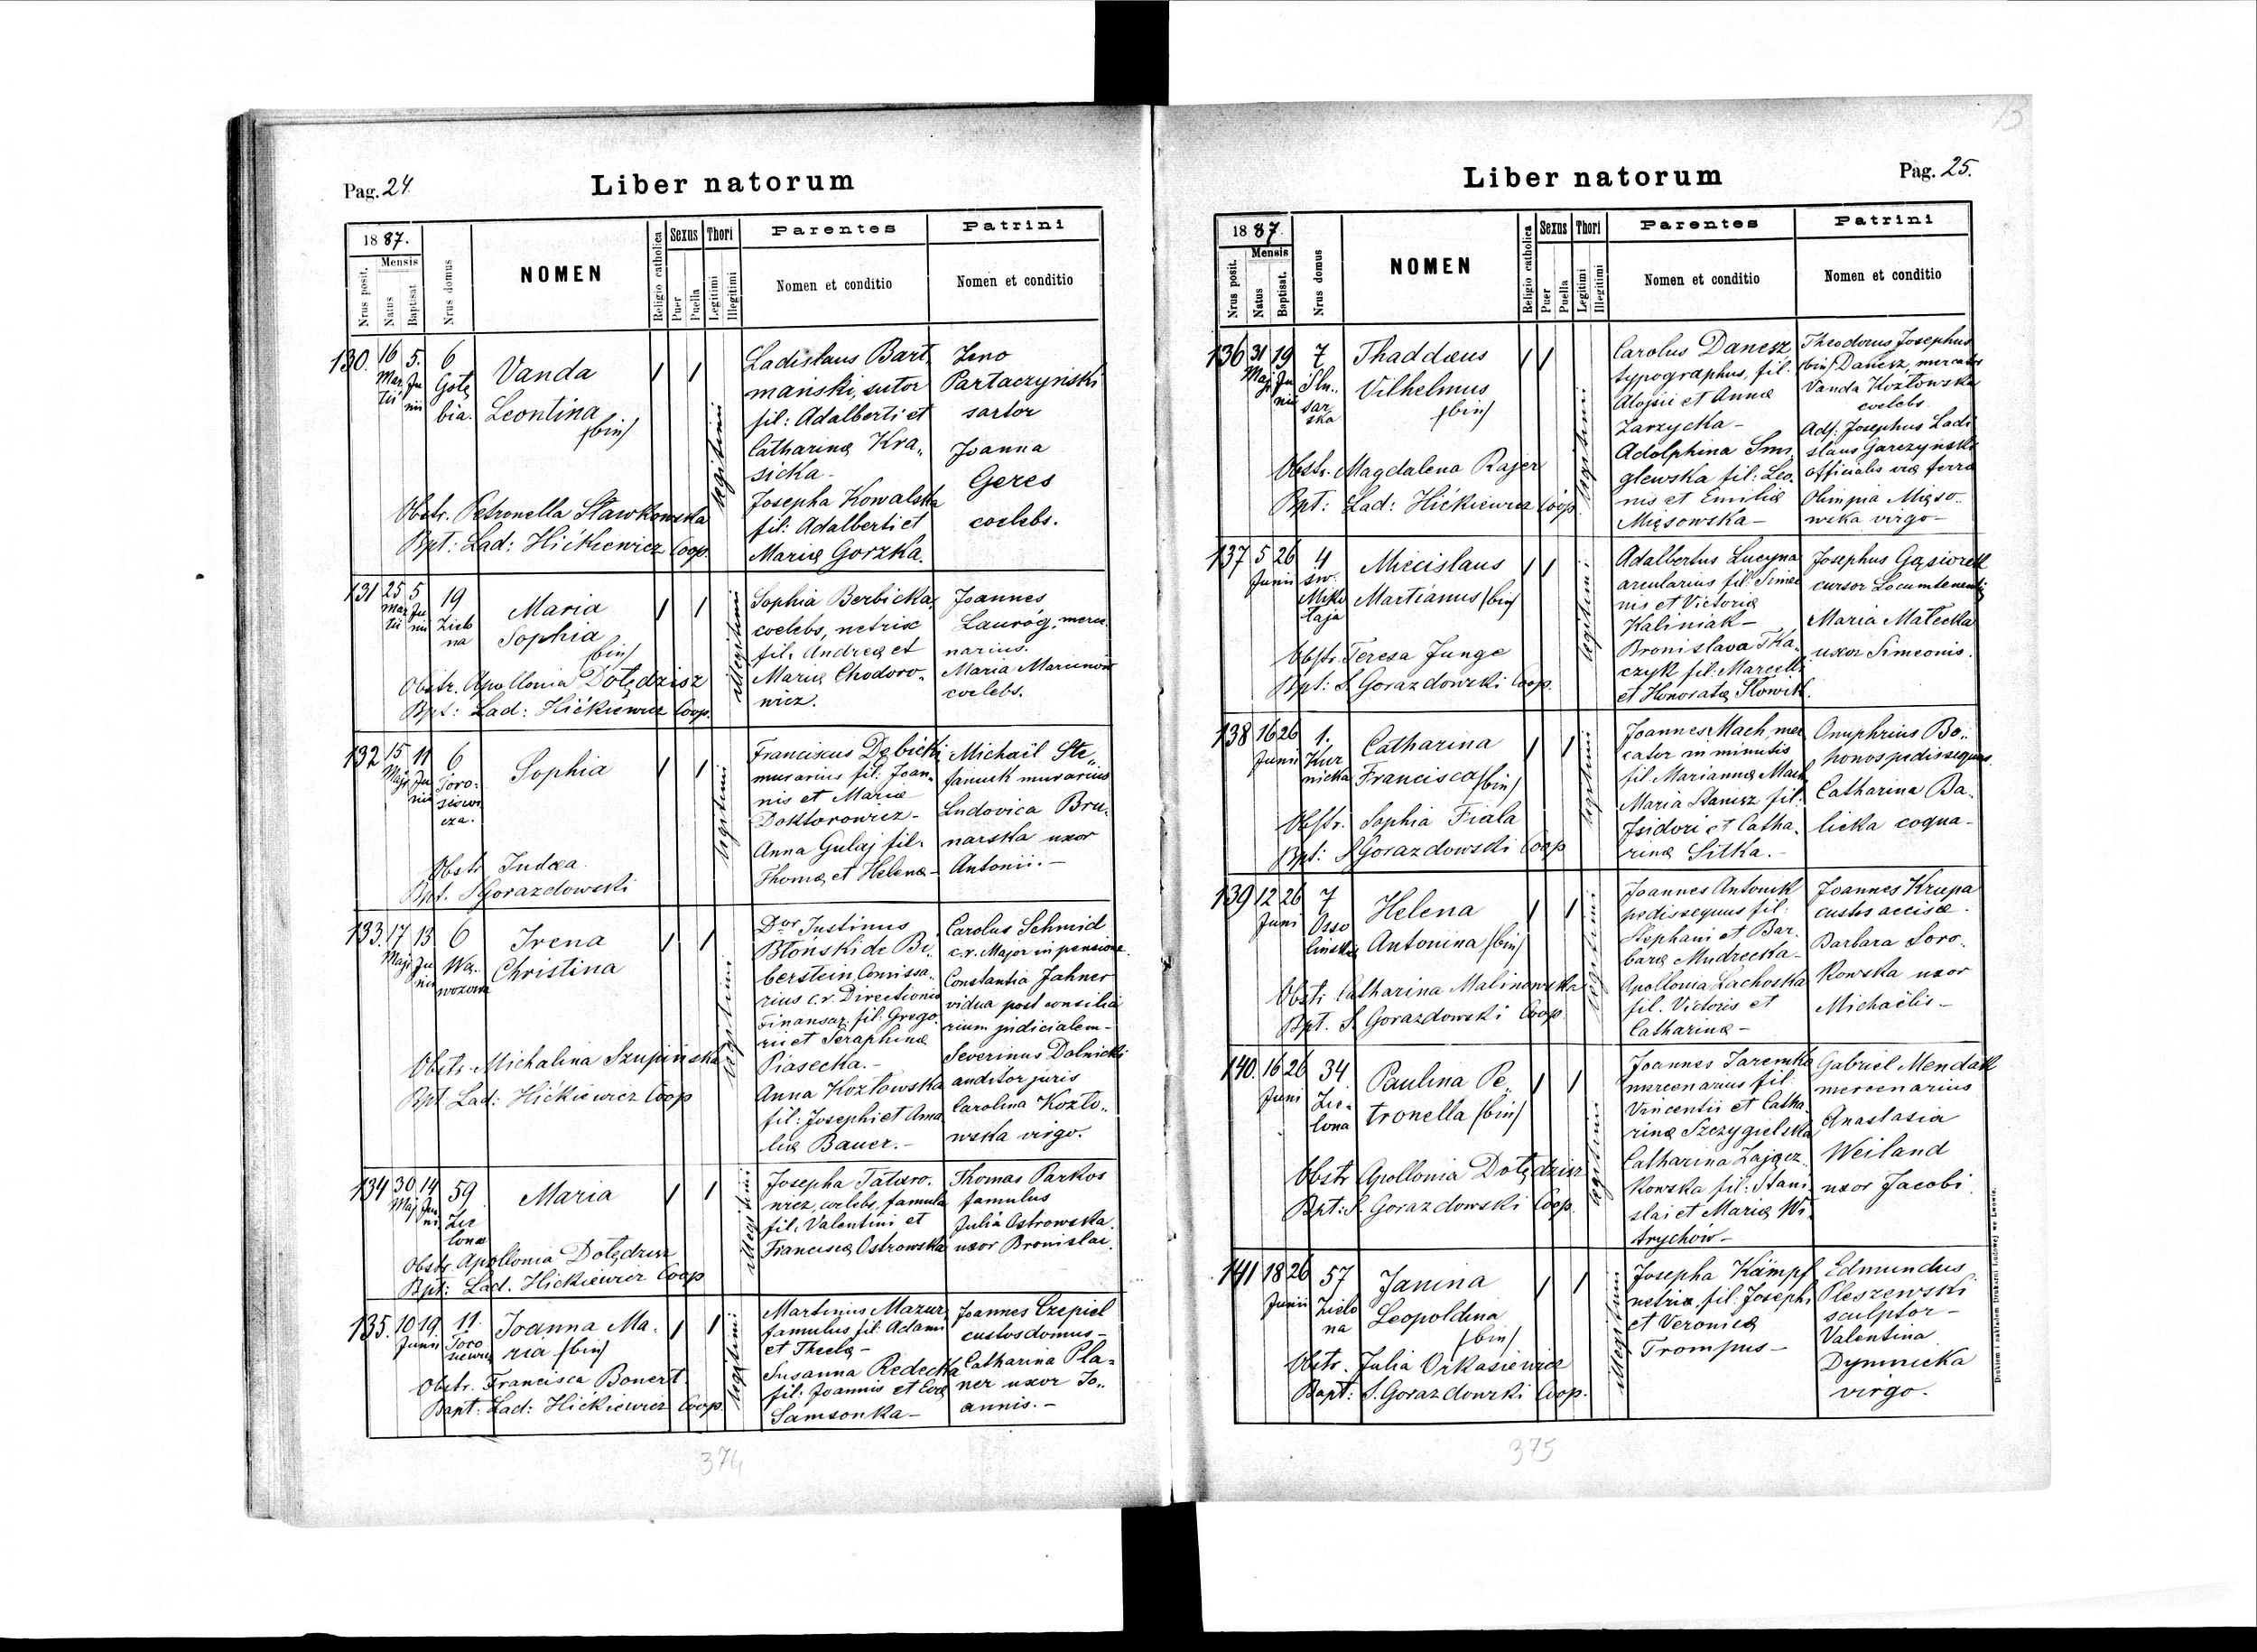 Pag. 24.
Liber natorum
1887.
Nrus posit.
Mensis
Natus
Baptisat
Nrus domus
NOMEN
Religio catholica
Sexus
Puer
Puella
Thori
Legitimi
Illegitimi
Parentes
Nomen et conditio
Patrini
Nomen et conditio
130. 16 Martii 5. Junii
6 Gołębia.
Vanda
Leontina
(bin)
Obstr. Petronella Sławkowska
Bpt: Lad: Hićkiewicz Coop.
legitimi
Ladislaus Bart„
mański, sutor
fil: Adalberti et
Catharinæ Kra„
sicka -
Josepha Kowalska
fil: Adalberti et
Mariæ Gorzka.
Zeno
Partaczyński
sartor
Joanna
Geres
coelebs.
131 25 Martii 5 Junii
19 Zielona
Maria
Sophia
(bin)
Obstr. Apollonia Dołędzisz
Bpt: Lad: Hićkiewicz Coop.
illegitimi
Sophia Berbicka,
coelebs, netrix
fil. Andreæ et
Mariæ Chodoro„
wicz.
Joannes
Lauróg, merce„
narius.
Maria
coelebs.
132 15 Maji 11 Junii
6 Torosiewicza.
Sophia
Obstr Judæa.
Bpt. S Gorazdowski
legitimi
Franciscus Dębicki
murarius fil: Joan„
nis et Mariæ
Doktorowicz -
Anna Gulaj fil.
Thomæ et Helenæ -
Michaël Ste„
faniuk murarius
Ludovica Bru„
narska uxor
Antonii. -
133. 17 Maji 13 Junii
6 Wałowa
Irena
Christina
Obstr. Michalina Szupińska
Bpt Lad: Hićkiewicz Coop
legitimi
Dor Justinus
Błonski de Bi„
berstein, Comissa„
rius c.r. Directionis
Finansar. fil: Grego„
rii et Seraphinæ
Piasecka. -
Anna Kozłowska
fil: Josephi et Ama„
liæ Bauer. -
Carolus Schmid
c.r. Major in pensione.
Constantia Jahner
vidua post consilia„
rium judicialem -
Severinus Dolnicki
auditor juris
Carolina Kozło„
wska virgo.
134 30 Maj 14 Juni
59 Zielona
Maria
Obstr. Apollonia Dołędzisz
Bpt: Lad. Hićkiewicz Coop
illegitimi
Josepha Tataro„
wicz, coelebs, famula
fil. Valentini et
Franciscæ Ostrowska
Thomas Parkos
famulus
Julia Ostrowska
uxor Bronislai.
135. 10 19. Junii
11. Torosiewicza
Joanna Ma„
ria (bin)
Obstr. Francisca Bonert.
Bapt: Lad: Hićkiewicz Coop.
legitimi
Martinus Mazur,
famulus fil: Adami
et Theclæ -
Susanna Redecka
fil: Joannis et Evæ
Samsonka -
Joannes Czepiel
custos domus -
Catharina Pla„
ner uxor Jo„
annis. -
374
13
Liber natorum
Pag. 25.
1887.
Nrus posit.
Mensis
Natus
Baptisat.
Nrus domus
NOMEN
Religio catholica
Sexus
Puer
Puella
Thori
Legitimi
Illegitimi
Parentes
Nomen et conditio
Patrini
Nomen et conditio
136 31 Maji 19 Junii
7 Ślusarska
Thaddæus
Vilhelmus
(bin)
Obstr. Magdalena Rajer
Bpt: Lad: Hićkiewicz Coop.
legitimi
Carolus Danesz
typographus, fil:
Aloisii et Annæ
Zarzycka -
Adolphina Smi„
glewska fil: Leo„
nis et Emiliæ
Mięsowska -
Theodorus Josephus
(bin) Danesz, mercator
Vanda Kozłowska
coelebs.
Ads: Josephus Ladi
slaus Garczyński
officialis viæ ferræ
Olimpia Mięso„
wska virgo -
137 5 26 Junii
4 św. Mikołaja
Miecislaus
Martianus (bin)
Obstr. Teresa Junge
Bpt: S. Gorazdowski Coop.
legitimi
Adalbertus Lucyna
arcularius fil: Simeo
nis et Victoriæ
Kaliniak -
Bronislava Tka„
czyk fil: Marcelli
et Honoratæ Słowik.
Josephus Gąsiorek
cursor Locumtenentiæ
Maria Małecka
uxor Simeonis.
138 16 26 Junii
1. Kurnicka
Catharina
Francisca (bin)
Obstr. Sophia Fiala
Bpt: S Gorazdowski Coop
legitimi
Joannes Mach, mer
cator in minutis
fil Mariannæ Mach
Maria Stanisz fil:
Isidori et Catha„
rinæ Sitka. -
Onuphrius Bo„
honos pedissequus.
Catharina Ba„
licka coqua -
139 12 26 Juni
7 Ossolińskich
Helena
Antonina (bin)
Obstr Catharina Malinowska
Bpt. S. Gorazdowski Coop
legitimi
Joannes Antonik
pedissequus fil:
Stephani et Bar„
baræ Mudrecka -
Apollonia Lachoska
fil. Victoris et
Catharinæ -
Joannes Krupa
custos accisæ -
Barbara Soro„
kowska uxor
Michaëlis -
140. 16 26 Juni
34 Zielona
Paulina Pe„
tronella (bin)
Obstr Apollonia Dołędzisz
Bpt: S. Gorazdowski Coop.
legitimi
Joannes Jaremka
mercenarius fil:
Vincentii et Catha„
rinæ Szczygielska
Catharina Zającz„
kowska fil: Stani„
slai et Mariæ Wi„
trychów -
Gabriel Mendak
mercenarius
Anastasia
Weiland
uxor Jacobi.
141 18 26 Junii
57 Zielona
Janina
Leopoldina
(bin)
Obstr. Julia Orkasiewicz
Bapt: S. Gorazdowski Coop.
illegitimi
Josepha Kämpf
netrix, fil. Josephi
et Veronicæ
Trompus -
Edmundus
Pleszewski
sculptor -
Valentina
Dymnicka
virgo.
Drukiem i nakładem Drukarni Ludowej we Lwowie.
375